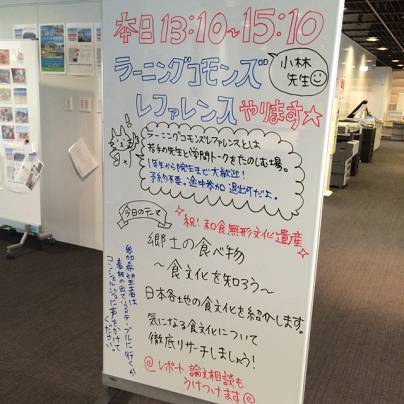 本日 13:10~15:10
ラーニングコモンズ
小林
先生
レファレンス やります☆
ラーニングコモンズレファレンスとは
若手の先生と学問トークをたのしむ場。
1年生から院生まで大歓迎!
予約不要。途中参加 退出可だよ。
今日のテーマ
祝!和食無形文化遺産
郷土の食べ物
~食文化を知ろう~
日本各地の食文化を紹介します。
気になる食文化について
徹底リサーチしましょう!
@レポート 論文相談も
うけつけます@
参加希望者は
看板の出ているテーブルに行くか
コンシェルジュに声をかけて
ください。